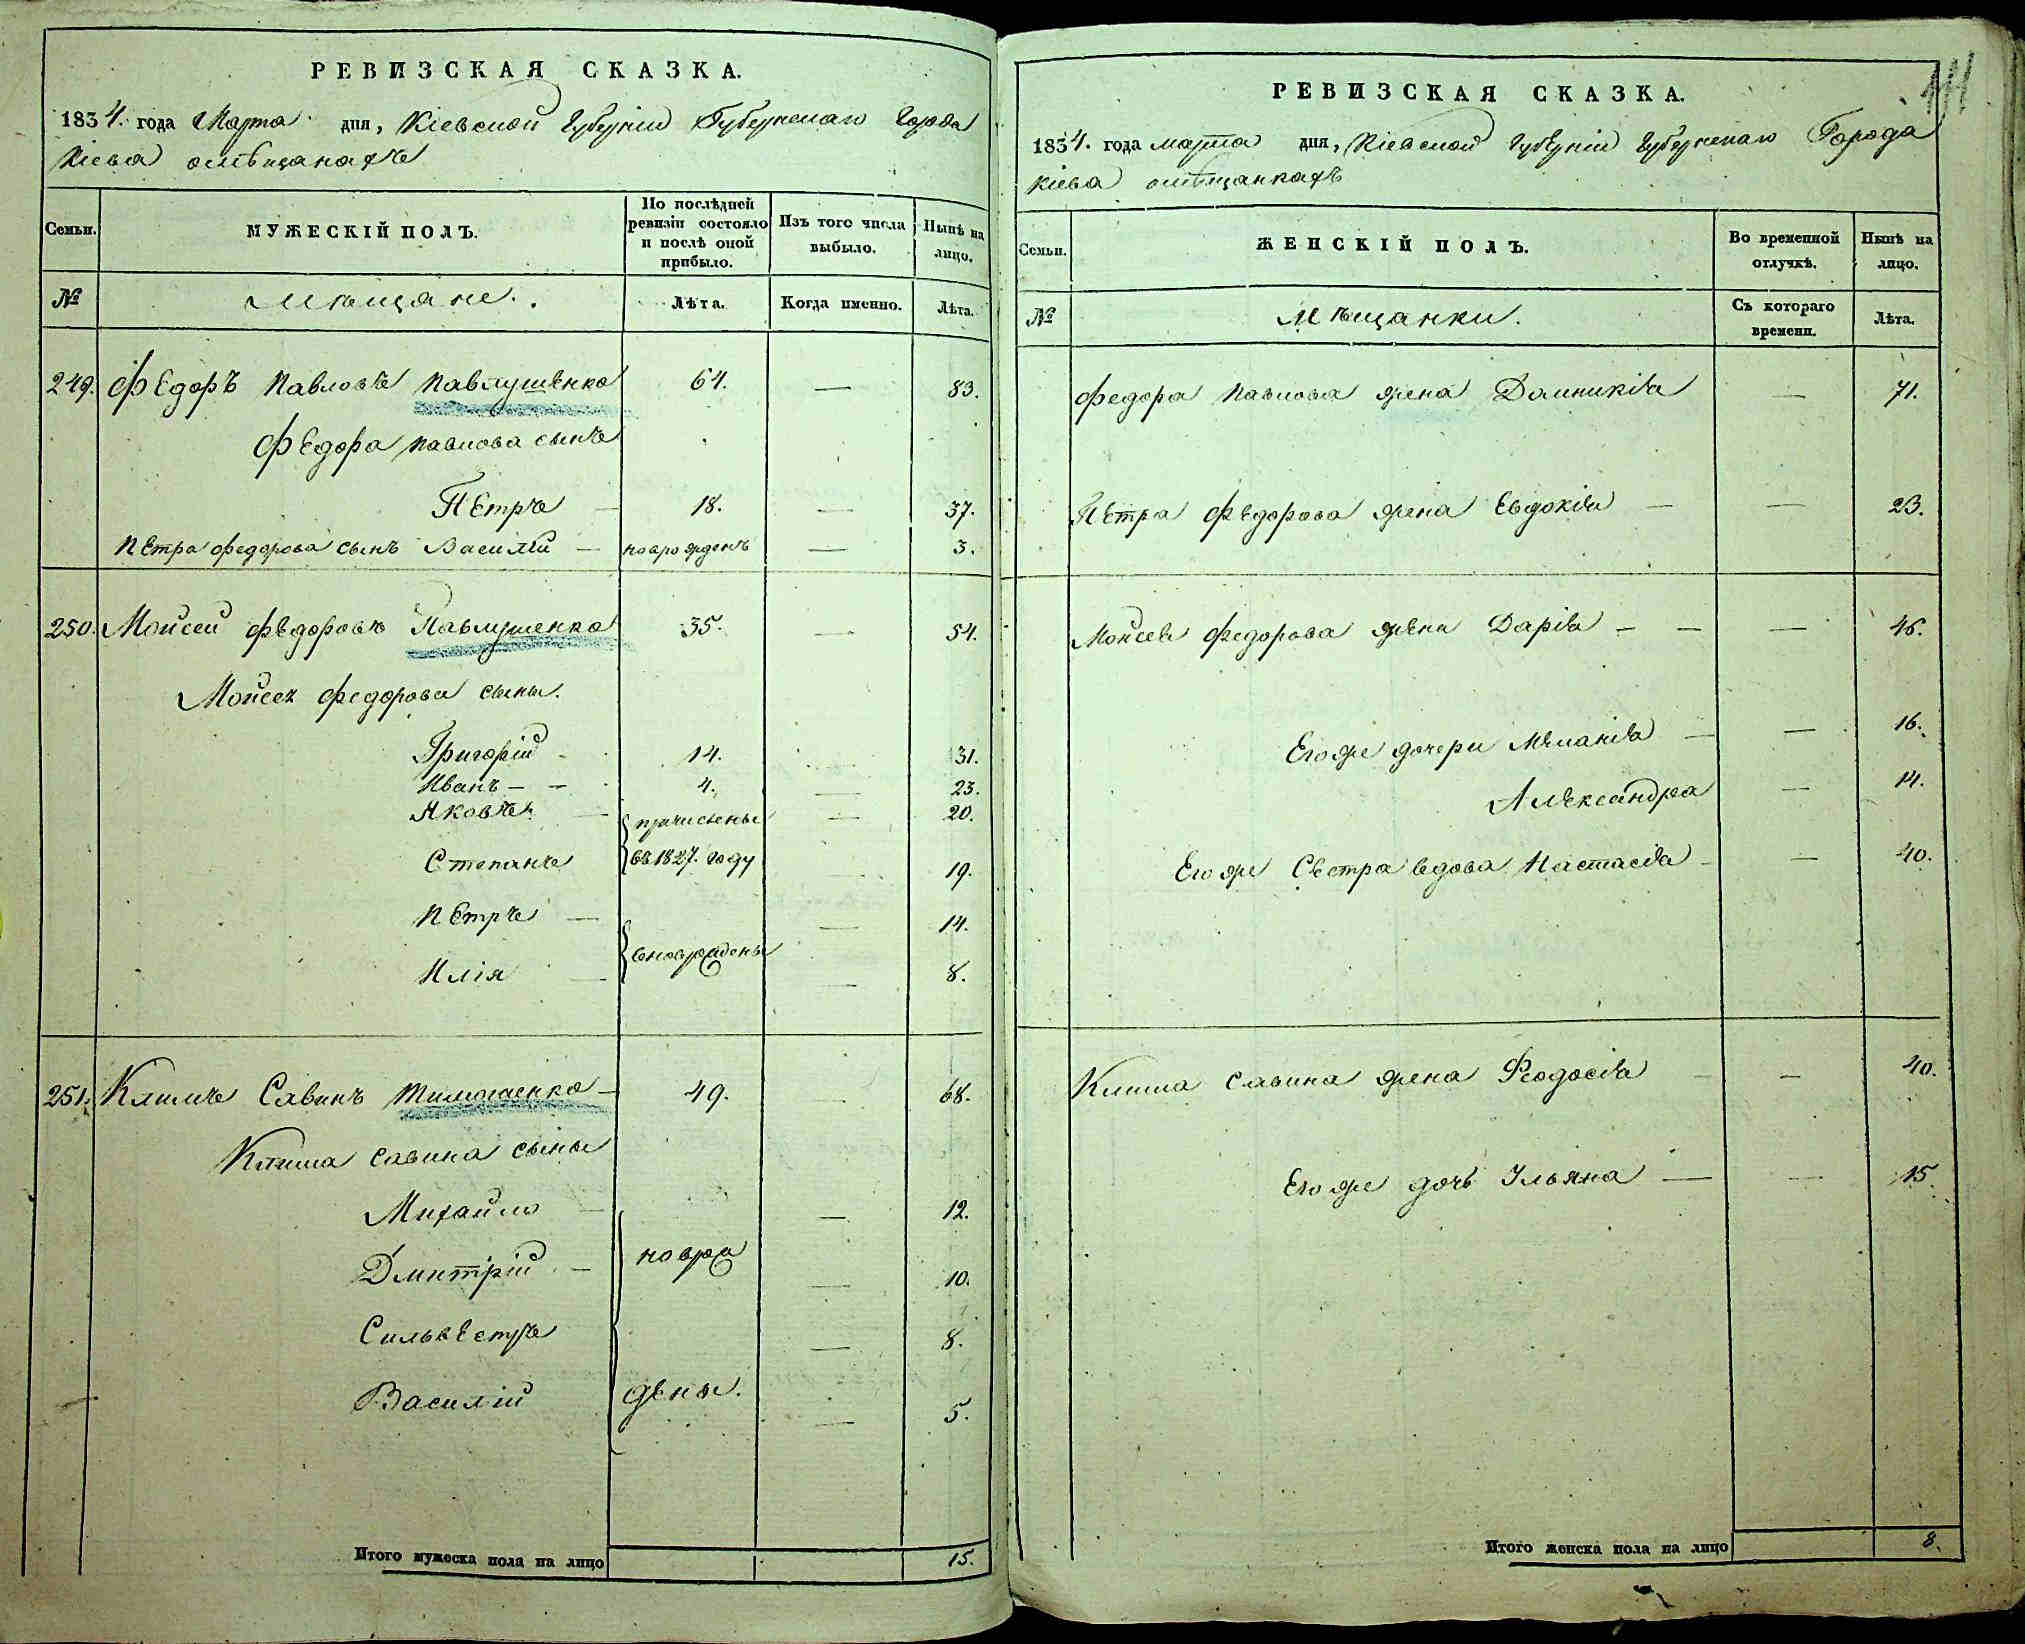 РЕВИЗСКАЯ СКАЗКА.
1834. года Марта дня, Кіевской Губерніи Губернскаго Города
Кіева омѣщанахъ
Семьи.
МУЖЕСКІЙ ПОЛЪ.
По послѣдней ревизіи состояло и послѣ оной прибыло.
Изъ того числа выбыло.
Нынѣ на лицо.
№
Мѣщане.
Лѣта.
Когда именно.
Лѣта.
249. Федоръ Павловъ Павлушенко 64. — 83.
Федора Павлова сынъ
Петръ — 18. — 37.
Петра Федорова сынъ Василій — новрожденъ — 3.
250. Мойсей Федоровъ Павлушенко 35. — 54.
Мойсея Федорова сыны.
Григорій — 14. 31.
Иванъ — — 4. — 23.
Яковъ — причислены — 20.
Степанъ въ 1827. году 19.
Петръ — — 14.
Илія — вноврождены — 8.
251. Климъ Савинъ Тимошенко — 49. — 68.
Клима Савина сыны
Михайло — — 12.
Дмитрій — новро — 10.
Сильвестръ — 8.
Василій дены. — 5.
Итого мужеска пола на лицо 15.
141
РЕВИЗСКАЯ СКАЗКА.
1834. года марта дня, Кіевской Губерніи Губернскаго Города
Кіева омѣщанкахъ
Семьи.
ЖЕНСКІЙ ПОЛЪ.
Во временной отлучкѣ.
Нынѣ на лицо.
№
Мѣщанки.
Съ котораго времени.
Лѣта.
Федора Павлова жена Домникія — 71.
Петра Федорова жена Евдокія — — 23.
Мойсея Федорова жена Дарія — — — 46.
Егоже дочери Меланія — — 16.
Александра — 14.
Егоже Сестра вдова Настасія — — 40.
Клима Савина жена Феодосія — — 40.
Егоже дочь Ульяна — — 15.
Итого женска пола на лицо 8.